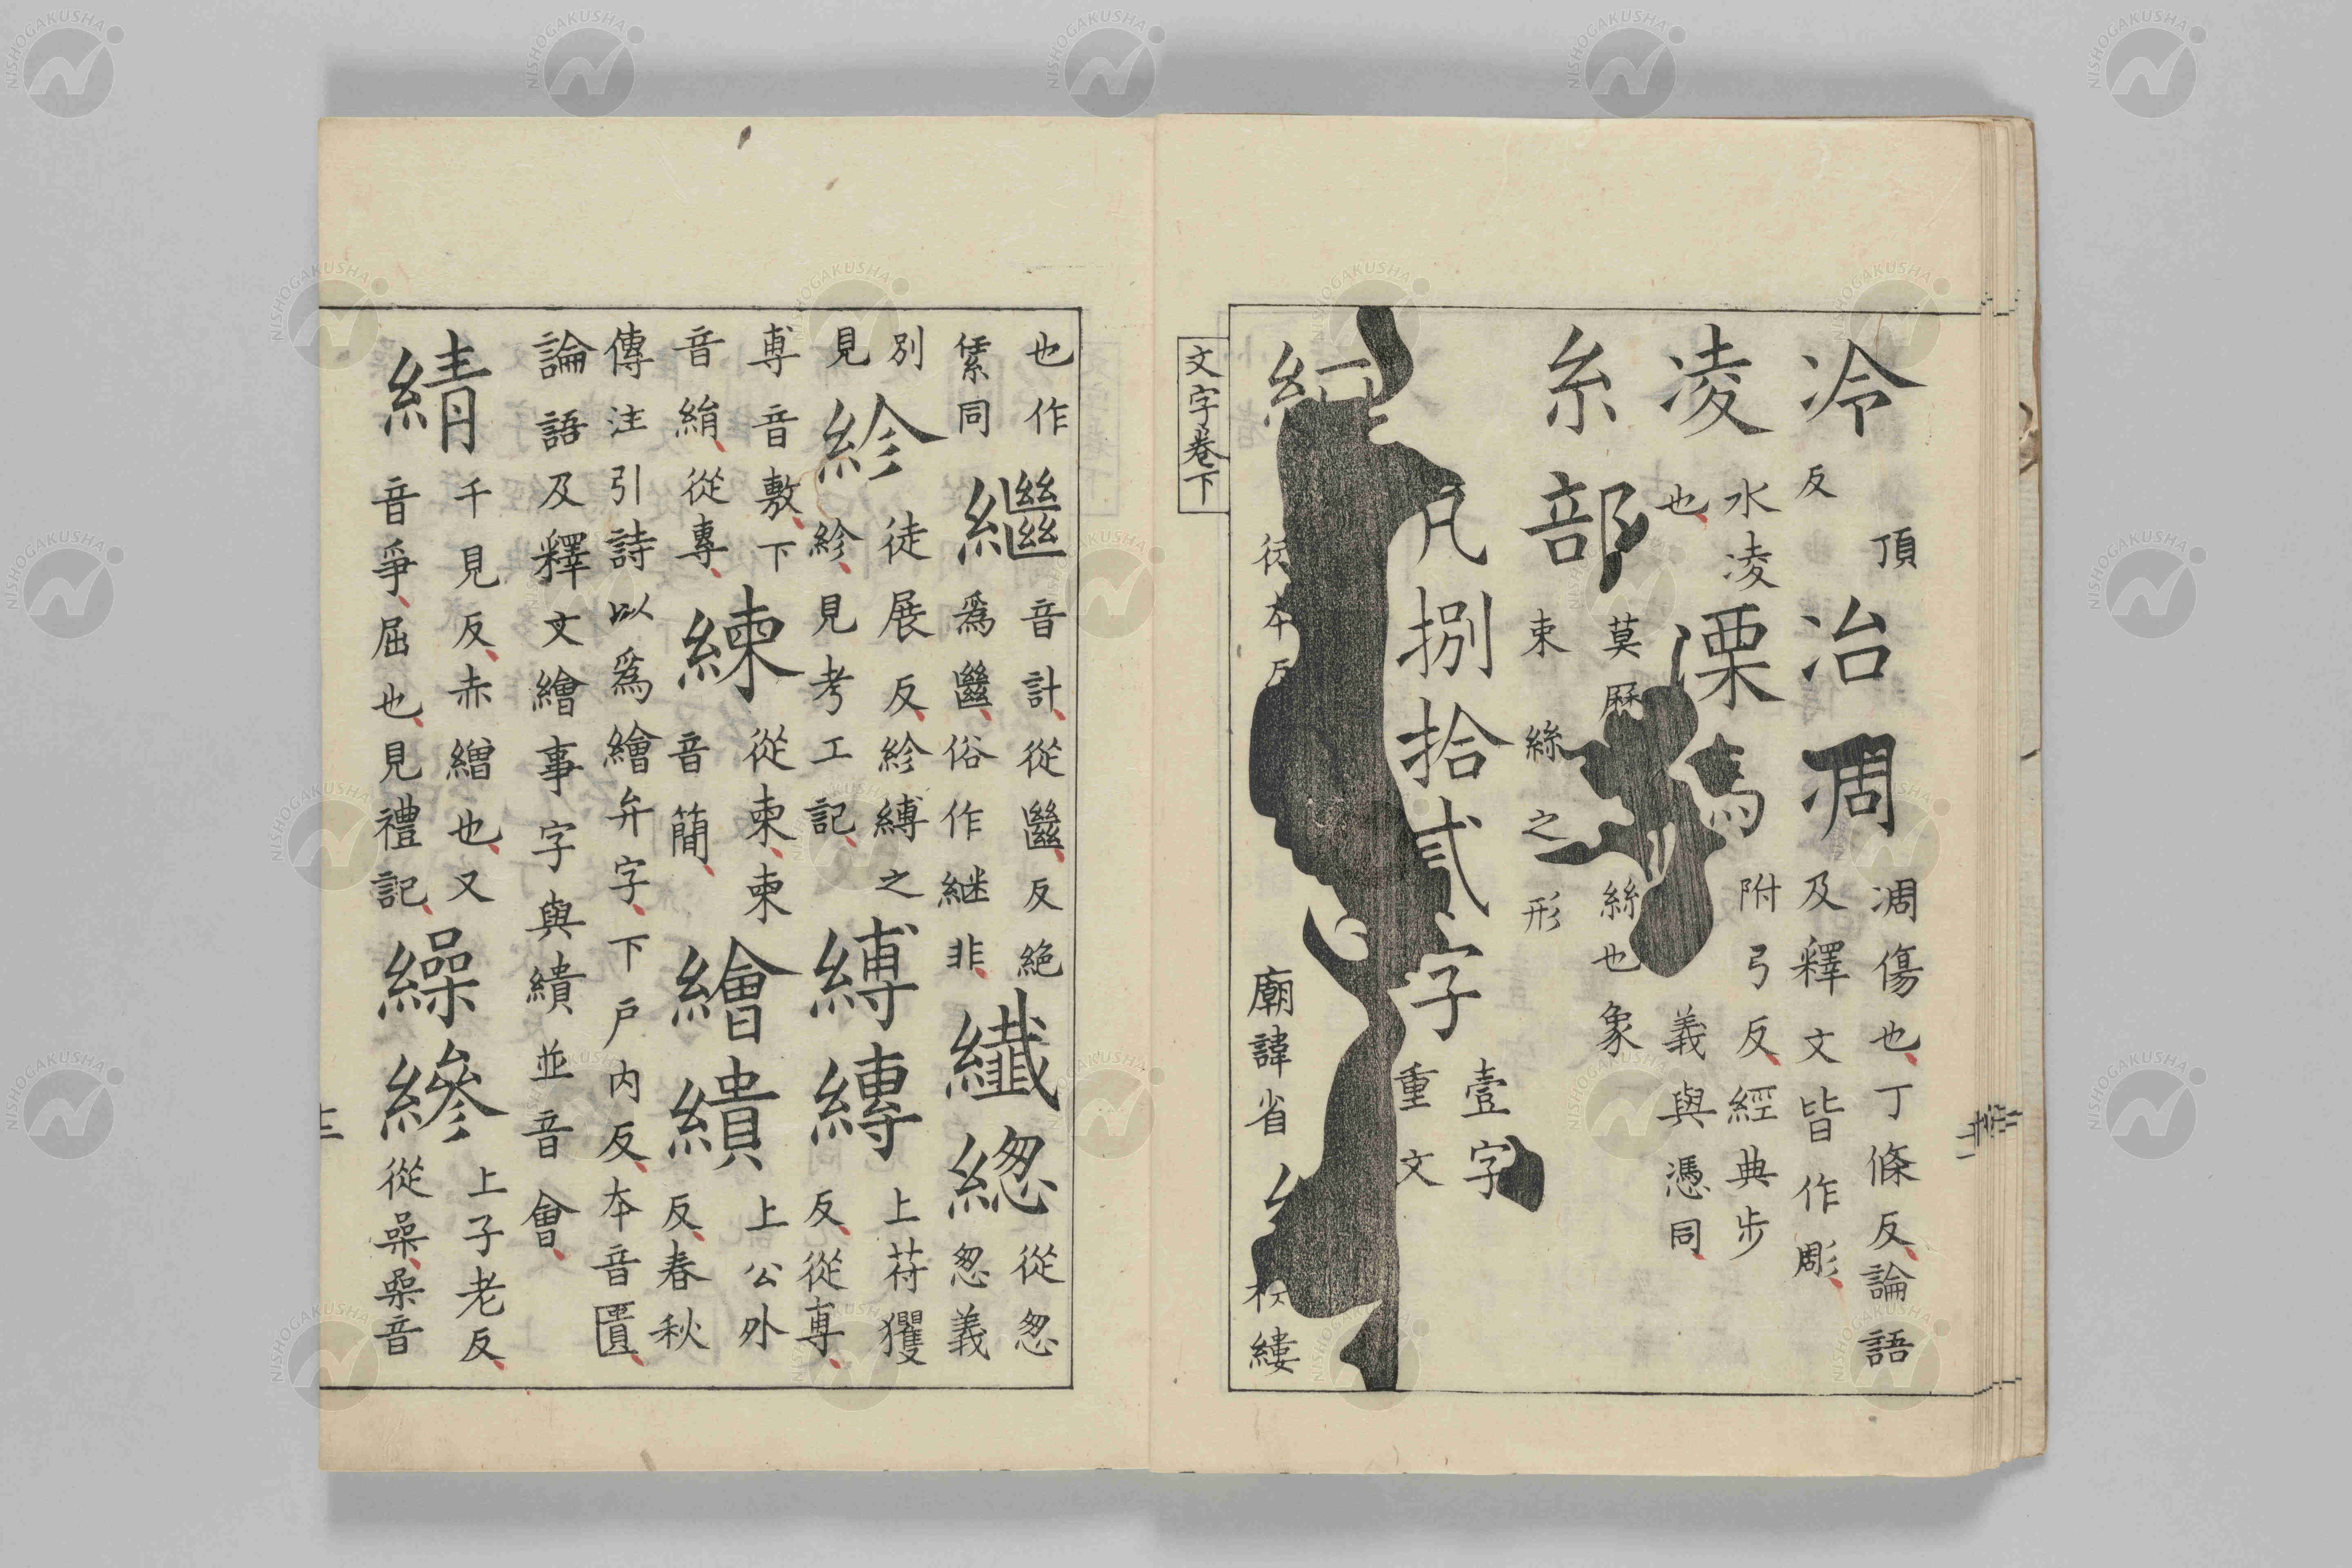 冷 頂反 冶 凋 凋傷也丁條反論語及釋文皆作彫
凌 水凌也 凓 馮 附弓反經典步義與憑同
糸部 莫歷 絲也象束絲之形
凡捌拾貳字 壹字重文
廟諱省
縷
文字卷下
也作繠同 繼 音計從𢇍𢇍反絕爲𢇍俗作継非 纖 緫 從怱怱義
別見 紾 徒展反紾縛之紾見考工記 縛 縳 上苻玃反從尃
尃音敷下音絹從專 練 從柬柬音簡 繪 繢 上公外反春秋
傳注引詩以爲繪弁字下戶內反本音匱
論語及釋文繪事字與繢並音會
綪 千見反赤繒也又音爭屈也見禮記 繰 縿 上子老反從喿喿音
NISHOGAKUSHA